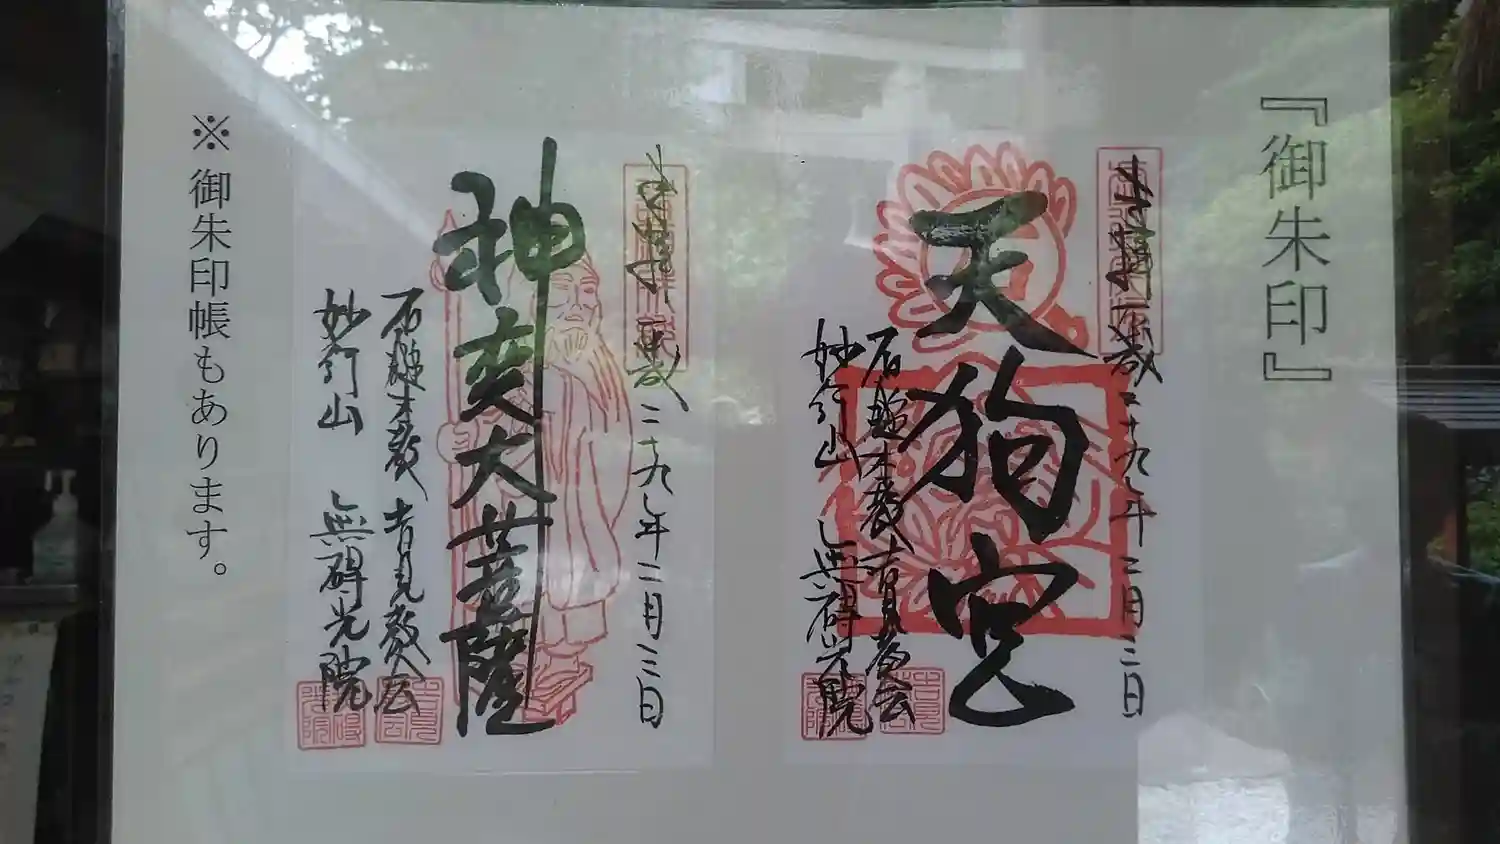 『御朱印』
二十九年三月三日
天狗宮
石鎚本教 吉見教会
妙行山 無碍光院
二十九年三月三日
神変大菩薩
石鎚本教 吉見教会
妙行山 無碍光院
※御朱印帳もあります。